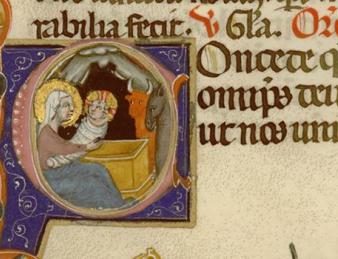 rabilia fecit. V Gla. Or
Oncede q
omips deu
ut nos uni